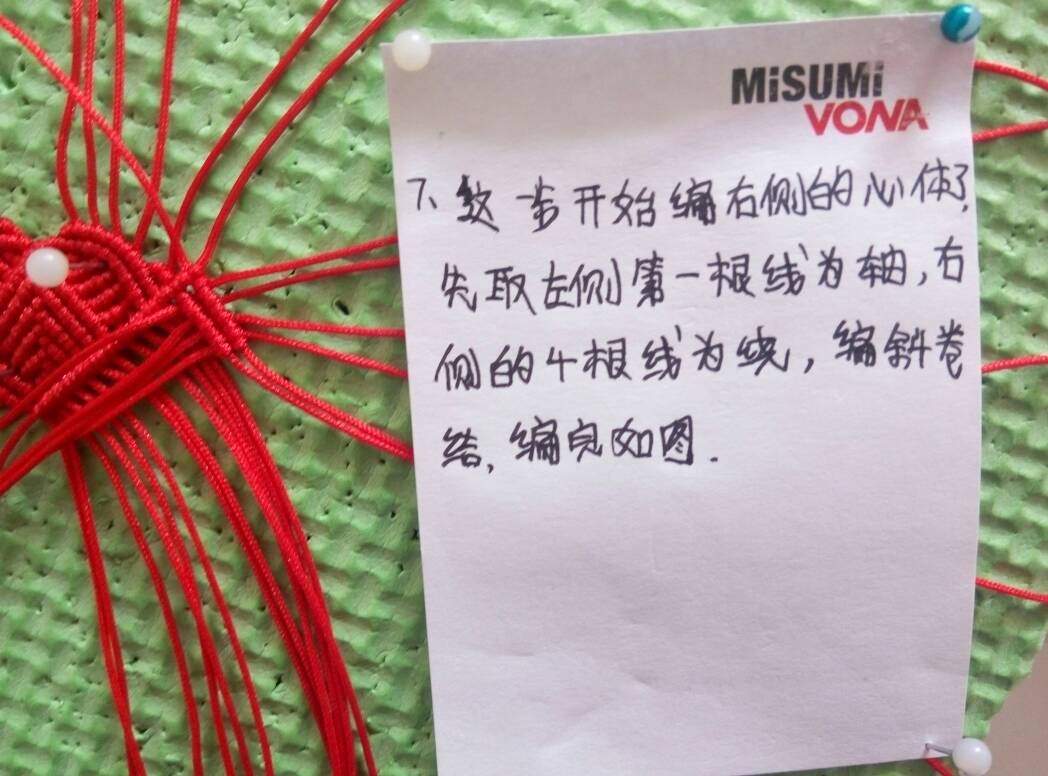 MiSUMi
VONA
7、这一步开始编右侧的心体了,
先取左侧第一根线为轴,右
侧的4根线为绕,编斜卷
结,编完如图.